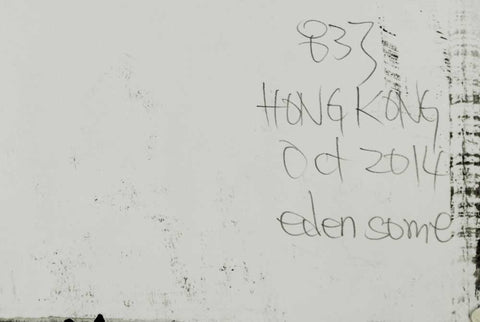 833
HONG KONG
Oct 2014
eden some